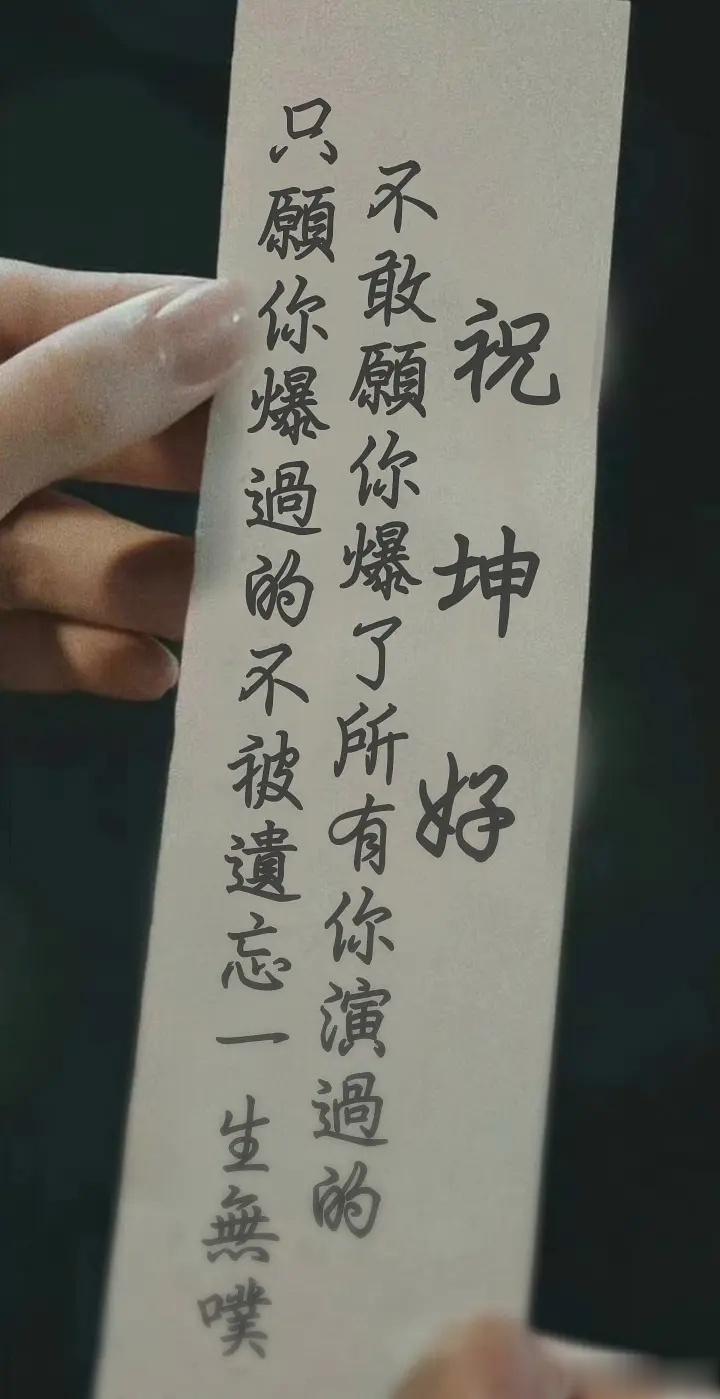 祝坤好
不敢願你爆了所有你演過的
只願你爆過的不被遺忘一生無噗